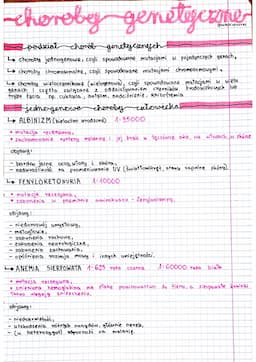 choroby genetyczne
podział chorób genetycznych
↳ choroby jednogenowe, czyli spowodowane mutacjami w pojedynczych genach,
↳ choroby chromosomalne, czyli spowodowane mutacjami chromosomowymi,
↳ choroby wieloczynnikowe (wielogenowe), czyli spowodowane mutacjami w wielu
genach i często związane z oddziaływaniem czynników środowiskowych
np. cukrzyca, autyzm, nadciśnienie, schizofrenia.
jednogenowe choroby człowieka
↳ ALBINIZM (bielactwo wrodzone) 1:35000
• mutacja recesywna,
• zachamowanie syntezy melaniny i jej brak w tęczówce oka, we włosach i w skórze
objawy:
- bardzo jasne oczy, włosy i skóra,
- nadwrażliwość na promieniowanie UV (światłowstręt, stany zapalne skóry)
↳ FENYLOKETONURIA 1:10000
• mutacja recesywna,
• zaburzenia w przemianie aminokwasu - fenyloalaniny,
objawy:
- niedorozwój umysłowy,
- małogłowie,
- zaburzenia ruchowe,
- zaburzenia neurologiczne,
- zaburzenia zachowania,
- opóźnienia rozwoju mowy i innych umiejętności.
↳ ANEMIA SIERPOWATA 1:625 rasa czarna 1:60000 rasa biała
• mutacja recesywna,
• zmieniona hemoglobina ma słabe powinowactwo do tlenu, a
łatwo ulegają zniszczeniu.
objawy:
- niedokrwistość,
- uszkodzenia różnych narządów, głównie nerek,
- (u heterozygot) odporność na malarię.